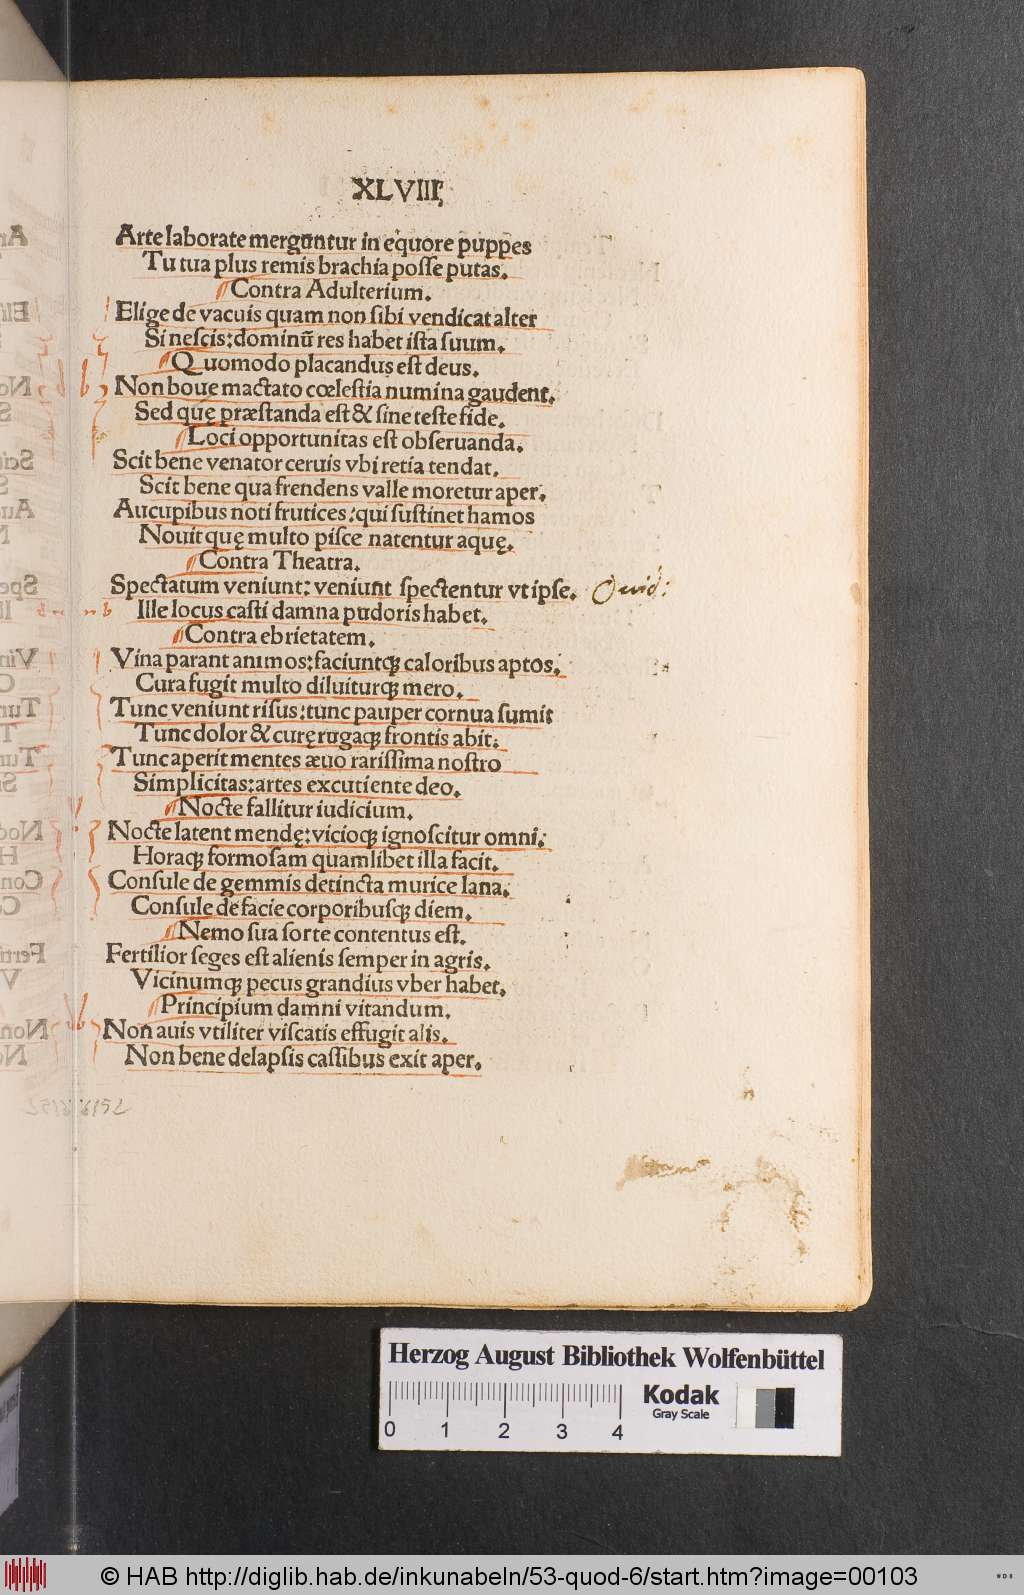 XLVIII
Arte laborate merguntur in equore puppes
Tu tua plus remis brachia posse putas.
Contra Adulterium.
Elige de vacuis quam non sibi vendicat alter
Si nescis: dominũ res habet ista suum.
Quomodo placandus est deus.
Non boue mactato cœlestia numina gaudent.
Sed quę præstanda est & sine teste fide.
Loci opportunitas est obseruanda.
Scit bene venator ceruis vbi retia tendat.
Scit bene qua frendens valle moretur aper.
Aucupibus noti frutices: qui sustinet hamos
Nouit quę multo pisce natentur aquę.
Contra Theatra.
Spectatum veniunt: veniunt spectentur vt ipse. Ovid:
Ille locus casti damna pudoris habet.
Contra ebrietatem.
Vina parant animos: faciuntqꝫ caloribus aptos.
Cura fugit multo diluiturqꝫ mero.
Tunc veniunt risus: tunc pauper cornua sumit
Tunc dolor & curę rugaqꝫ frontis abit.
Tunc aperit mentes æuo rarissima nostro
Simplicitas: artes excutiente deo.
Nocte fallitur iudicium.
Nocte latent mendę: vicioqꝫ ignoscitur omni.
Horaqꝫ formosam quamlibet illa facit.
Consule de gemmis de tincta murice lana.
Consule de facie corporibusqꝫ diem.
Nemo sua sorte contentus est.
Fertilior seges est alienis semper in agris.
Vicinumqꝫ pecus grandius vber habet.
Principium damni vitandum.
Non auis vtiliter viscatis effugit alis.
Non bene delapsis cassibus exit aper.
Herzog August Bibliothek Wolfenbüttel
Kodak
Gray Scale
0 1 2 3 4
© HAB http://diglib.hab.de/inkunabeln/53-quod-6/start.htm?image=00103